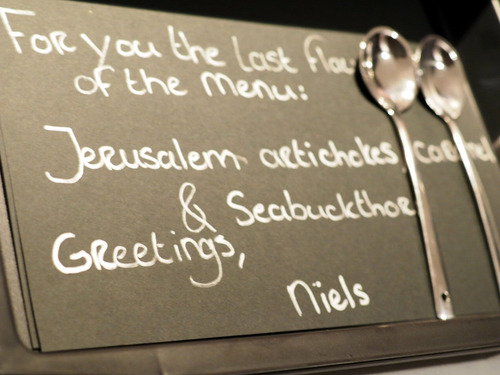 For you the last
of the menu:
Jerusalem artichokes
& Seabuckthor
Greetings,
Niels